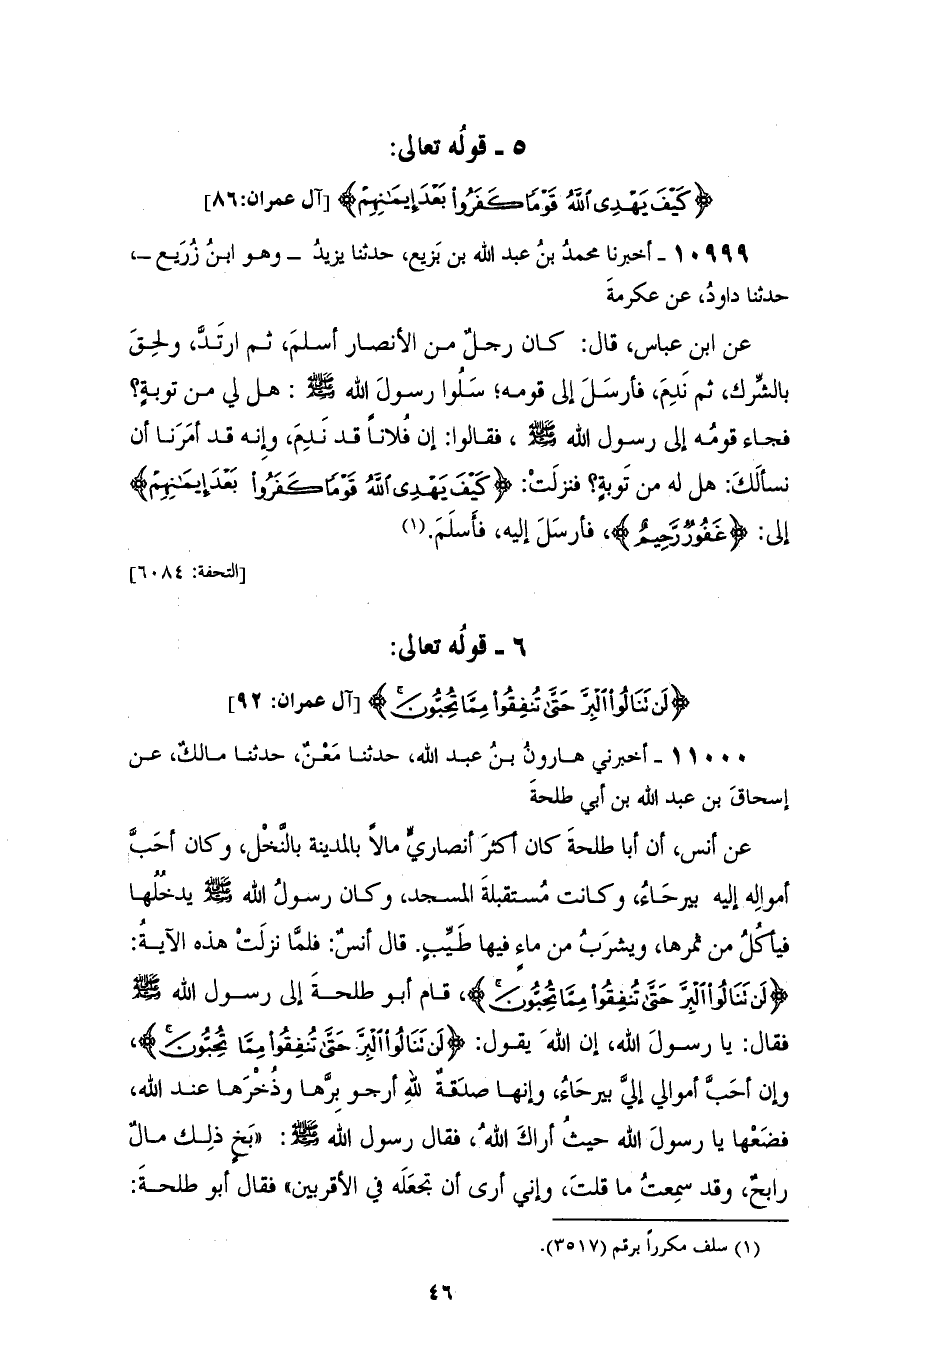 ٥ ـ قولُه تعالى:
﴿كَيْفَ يَهْدِى ٱللَّهُ قَوْمًا كَفَرُوا۟ بَعْدَ إِيمَـٰنِهِمْ﴾ [آل عمران:٨٦]
١٠٩٩٩ ـ أخبرنا محمدُ بنُ عبد الله بن بَزيع، حدثنا يزيدُ ـ وهو ابنُ زُرَيع ـ،
حدثنا داودُ، عن عكرمةَ
عن ابن عباس، قال: كان رجلٌ من الأنصار أسلمَ، ثم ارتَدَّ، ولحِقَ
بالشِّرك، ثم نَدِمَ، فأرسَلَ إلى قومه؛ سَلُوا رسولَ الله ﷺ : هل لي من توبةٍ؟
فجاء قومُه إلى رسول الله ﷺ ، فقالوا: إن فُلاناً قد نَدِمَ، وإنه قد أمَرَنا أن
نسألَكَ: هل له من تَوبةٍ؟ فنزلَتْ: ﴿كَيْفَ يَهْدِى ٱللَّهُ قَوْمًا كَفَرُوا۟ بَعْدَ إِيمَـٰنِهِمْ﴾
إلى: ﴿غَفُورٌ رَّحِيمٌ﴾، فأرسَلَ إليه، فأَسلَمَ.(١)
[التحفة: ٦٠٨٤]
٦ ـ قولُه تعالى:
﴿لَن تَنَالُوا۟ ٱلْبِرَّ حَتَّىٰ تُنفِقُوا۟ مِمَّا تُحِبُّونَ ۚ﴾ [آل عمران: ٩٢]
١١٠٠٠ ـ أخبرني هارونُ بنُ عبد الله، حدثنا مَعْنٌ، حدثنا مالكٌ، عن
إسحاقَ بن عبد الله بن أبي طلحةَ
عن أنس، أن أبا طلحةَ كان أكثرَ أنصاريٍّ مالاً بالمدينة بالنَّخْل، وكان أحَبَّ
أموالِه إليه بيرحَاءُ، وكانت مُستقبلةَ المسجد، وكان رسولُ الله ﷺ يدخُلُها
فيأكُلُ من ثمرها، ويشرَبُ من ماءٍ فيها طَيِّبٍ. قال أنسٌ: فلمَّا نزلَتْ هذه الآيةُ:
﴿لَن تَنَالُوا۟ ٱلْبِرَّ حَتَّىٰ تُنفِقُوا۟ مِمَّا تُحِبُّونَ ۚ﴾، قام أبو طلحةَ إلى رسول الله ﷺ
فقال: يا رسولَ الله، إن اللهَ يقول: ﴿لَن تَنَالُوا۟ ٱلْبِرَّ حَتَّىٰ تُنفِقُوا۟ مِمَّا تُحِبُّونَ ۚ﴾،
وإن أحَبَّ أموالي إليَّ بيرحَاءُ، وإنها صدَقةٌ للهِ أرجو بِرَّها وذُخْرَها عند الله،
فضَعْها يا رسولَ الله حيثُ أراكَ اللهُ، فقال رسول الله ﷺ : «بَخٍ ذلك مالٌ
رابحٌ، وقد سمِعتُ ما قلتَ، وإني أرى أن تجعَلَه في الأقربين» فقال أبو طلحةَ:
(١) سلف مكرراً برقم (٣٥١٧).
٤٦